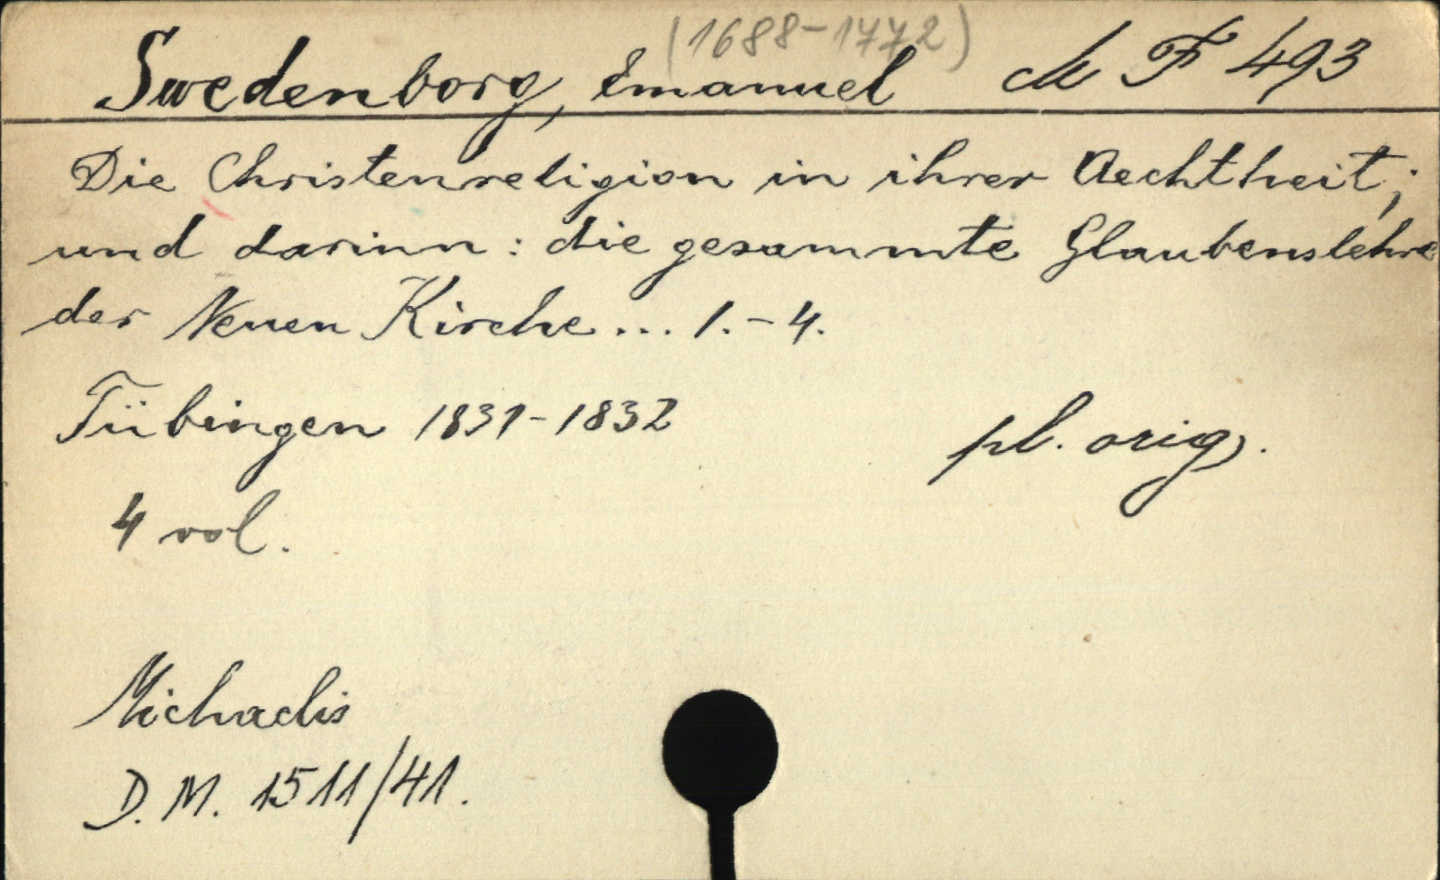 (1688-1772)
Swedenborg, Emanuel ch F 493
Die Christenreligion in ihrer Aechtheit;
und darinn: die gesammte Glaubenslehre
der Neuen Kirche... 1.-4.
Tübingen 1831-1832
pl. orig.
4 vol.
Michaelis
D. M. 1511/41.